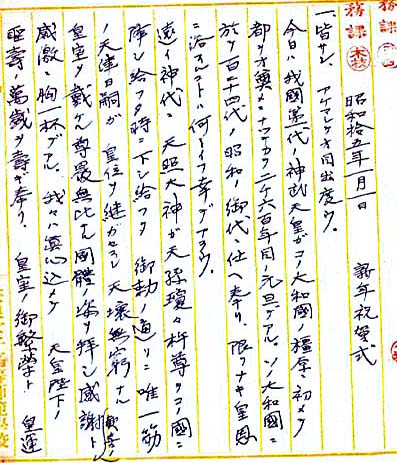 昭和拾五年一月一日　新年祝賀式
一、皆サン アケマシテオ目出度ウ。
今日ハ我國第一代ノ神武天皇ガコノ大和國ノ橿原ニ初メテ
都ヲオ奠メニナツテカラ二千六百年目ノ元旦デアル。ソノ大和國ニ
於テ百二十四代ノ昭和ノ御代ニ仕ヘ奉リ、限リナキ皇恩
ニ浴スルコトハ何トイフ幸デアラウ。
遠イ神代ニ 天照大神ガ天孫瓊々杵尊ヲコノ國ニ
降シ給フタ時ニ下シ給フタ 御勅ノ通リニ唯一筋
ノ天津日嗣ガ 皇位ヲ継ガセラレ 天壌無窮ナル
皇室ヲ戴ケル尊嚴無比ナル國體ノ姿ヲ拝シ感謝ト
感激ニ胸一杯デアル。我々ハ眞心込メテ 天皇陛下ノ
聖壽ノ萬歳ヲ壽ギ奉リ、皇室ノ御繁榮ト 皇運